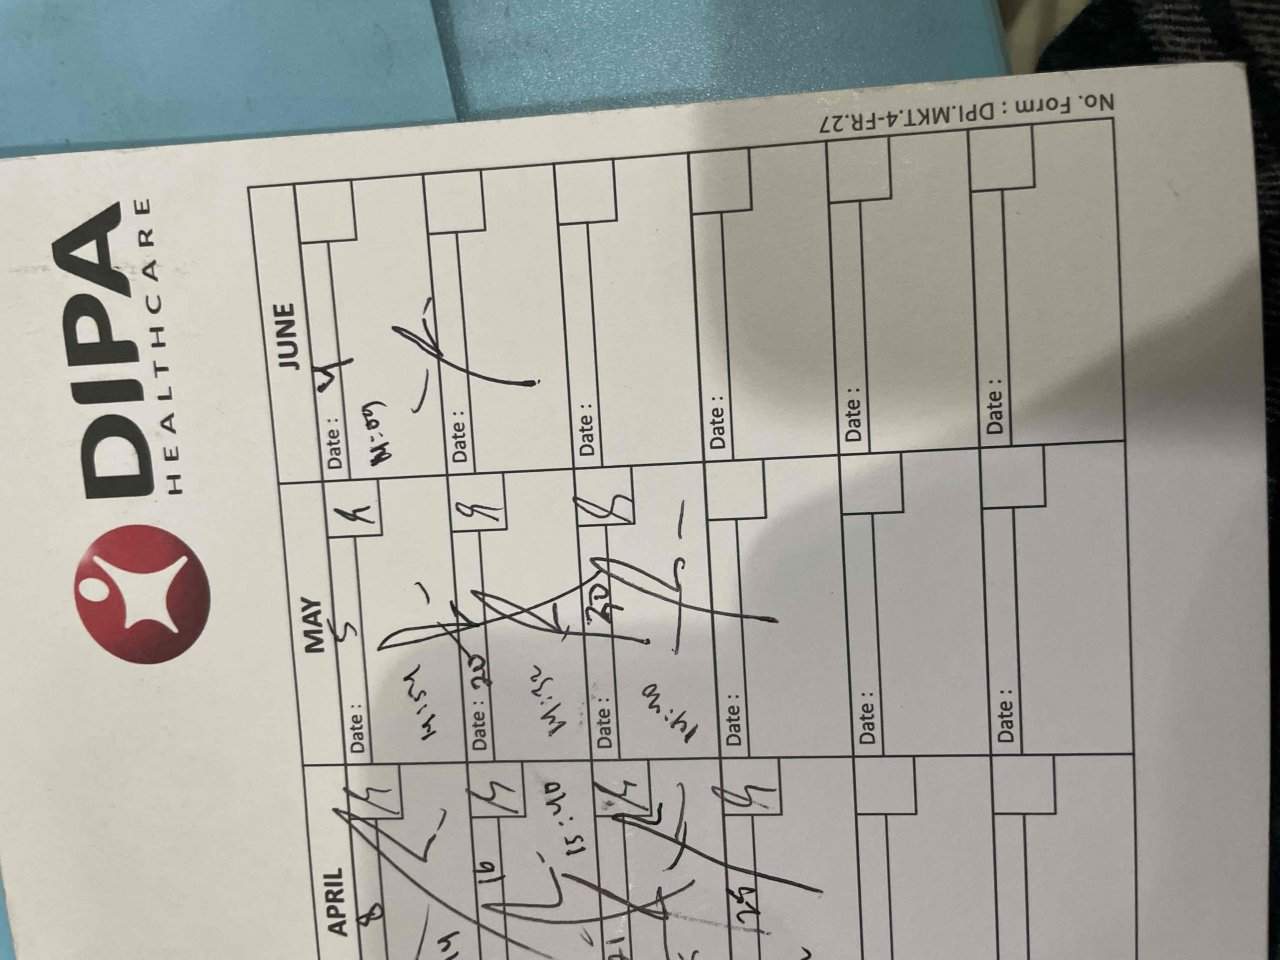 DIPA
HEALTHCARE
APRIL MAY JUNE
8 Date : 5 Date : 4
14:54 14:09
16 Date : 20 Date :
15:40 14:32
21 Date : 30 Date :
14:40
25 Date : Date :
Date : Date :
Date : Date :
No. Form : DPI.MKT.4-FR.27